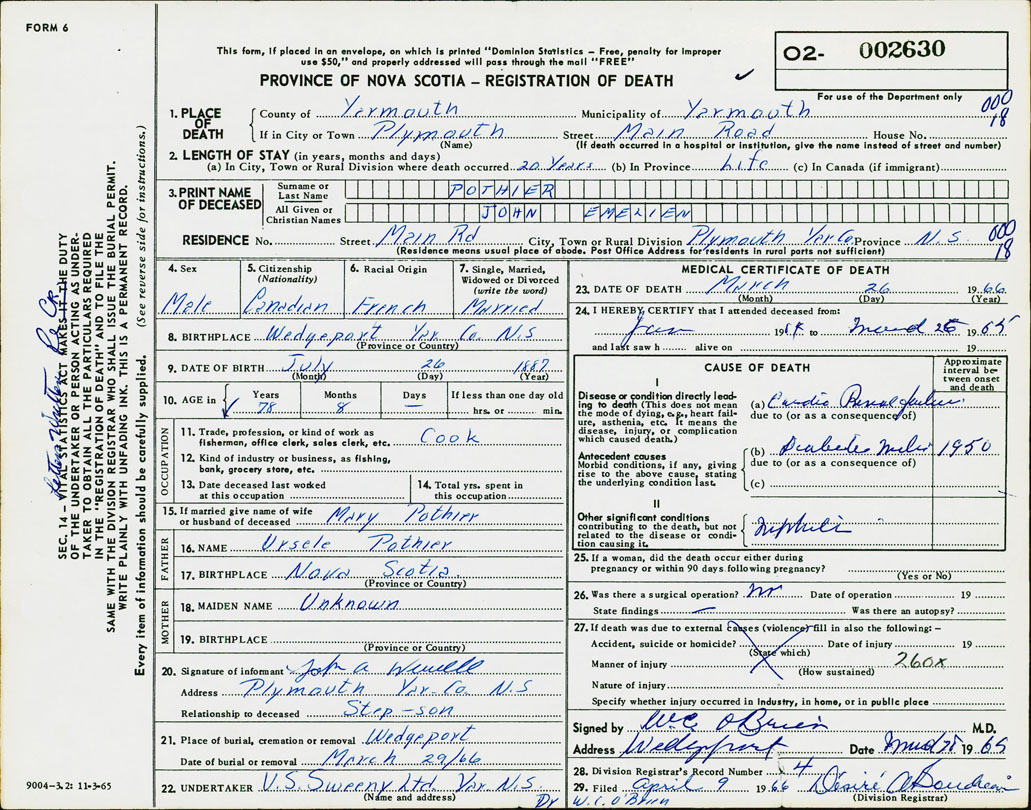 FORM 6
This form, if placed in an envelope, on which is printed "Dominion Statistics – Free, penalty for improper
use $50," and properly addressed will pass through the mail "FREE"
PROVINCE OF NOVA SCOTIA – REGISTRATION OF DEATH
O2- 002630
For use of the Department only
000
18
1. PLACE OF DEATH
County of Yarmouth Municipality of Yarmouth
If in City or Town Plymouth Street Main Road House No.
(Name) (If death occurred in a hospital or institution, give the name instead of street and number)
2. LENGTH OF STAY (in years, months and days)
(a) In City, Town or Rural Division where death occurred 20 Years (b) In Province Life (c) In Canada (if immigrant)
3. PRINT NAME OF DECEASED
Surname or Last Name POTHIER
All Given or Christian Names JOHN EMELIEN
RESIDENCE No. Street Main Rd City, Town or Rural Division Plymouth Yar Co. Province N.S.
(Residence means usual place of abode. Post Office Address for residents in rural parts not sufficient)
000
18
4. Sex
Male
5. Citizenship
(Nationality)
Canadian
6. Racial Origin
French
7. Single, Married,
Widowed or Divorced
(write the word)
Married
8. BIRTHPLACE Wedgeport Yar. Co. N.S
(Province or Country)
9. DATE OF BIRTH July 26 1887
(Month) (Day) (Year)
10. AGE in
Years
78
Months
8
Days
—
If less than one day old
hrs. or min.
OCCUPATION
11. Trade, profession, or kind of work as
fisherman, office clerk, sales clerk, etc. Cook
12. Kind of industry or business, as fishing,
bank, grocery store, etc.
13. Date deceased last worked
at this occupation
14. Total yrs. spent in
this occupation
15. If married give name of wife
or husband of deceased Mary Pothier
FATHER
16. NAME Ursele Pothier
17. BIRTHPLACE Nova Scotia
(Province or Country)
MOTHER
18. MAIDEN NAME Unknown
19. BIRTHPLACE
(Province or Country)
20. Signature of informant John A
Address Plymouth Yar. Co. N.S
Relationship to deceased Step-son
21. Place of burial, cremation or removal Wedgeport
Date of burial or removal March 29/66
22. UNDERTAKER V.S. Sweeny Ltd. Yar. N.S
(Name and address)
MEDICAL CERTIFICATE OF DEATH
23. DATE OF DEATH March 26 1966
(Month) (Day) (Year)
24. I HEREBY CERTIFY that I attended deceased from:
Jan 19 to 19
and last saw h alive on 19
CAUSE OF DEATH
Approximate
interval be-
tween onset
and death
I
Disease or condition directly lead-
ing to death (This does not mean
the mode of dying, e.g., heart fail-
ure, asthenia, etc. It means the
disease, injury, or complication
which caused death.)
(a) Cardio Renal failure
due to (or as a consequence of)
Antecedent causes
Morbid conditions, if any, giving
rise to the above cause, stating
the underlying condition last.
(b) Diabetes 1950
due to (or as a consequence of)
(c)
II
Other significant conditions
contributing to the death, but not
related to the disease or condi-
tion causing it.
25. If a woman, did the death occur either during
pregnancy or within 90 days following pregnancy?
(Yes or No)
26. Was there a surgical operation? no Date of operation 19
State findings — Was there an autopsy?
27. If death was due to external causes (violence) fill in also the following: –
Accident, suicide or homicide? Date of injury 19
(State which)
Manner of injury 260x
(How sustained)
Nature of injury
Specify whether injury occurred in Industry, in home, or in public place
Signed by W.C. O'Brien M.D.
Address Wedgeport Date 1965
28. Division Registrar's Record Number 4
29. Filed April 9 1966 Désiré
(Division Registrar)
Dr W.C. O'Brien
SEC. 14 – VITAL STATISTICS ACT MAKES IT THE DUTY
OF THE UNDERTAKER OR PERSON ACTING AS UNDER-
TAKER TO OBTAIN ALL THE PARTICULARS REQUIRED
IN THE "REGISTRATION OF DEATH" AND TO FILE THE
SAME WITH THE DIVISION REGISTRAR WHO SHALL ISSUE THE BURIAL PERMIT.
WRITE PLAINLY WITH UNFADING INK. THIS IS A PERMANENT RECORD.
Every item of information should be carefully supplied. (See reverse side for instructions.)
9004-3.2: 11-3-65